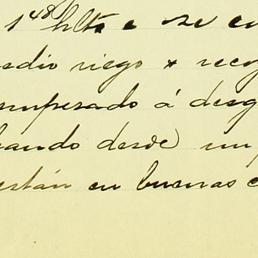 1⁴⁸ hlts e se en
edio riego x reco
empesado á desg
bando desde un
están en buenas c